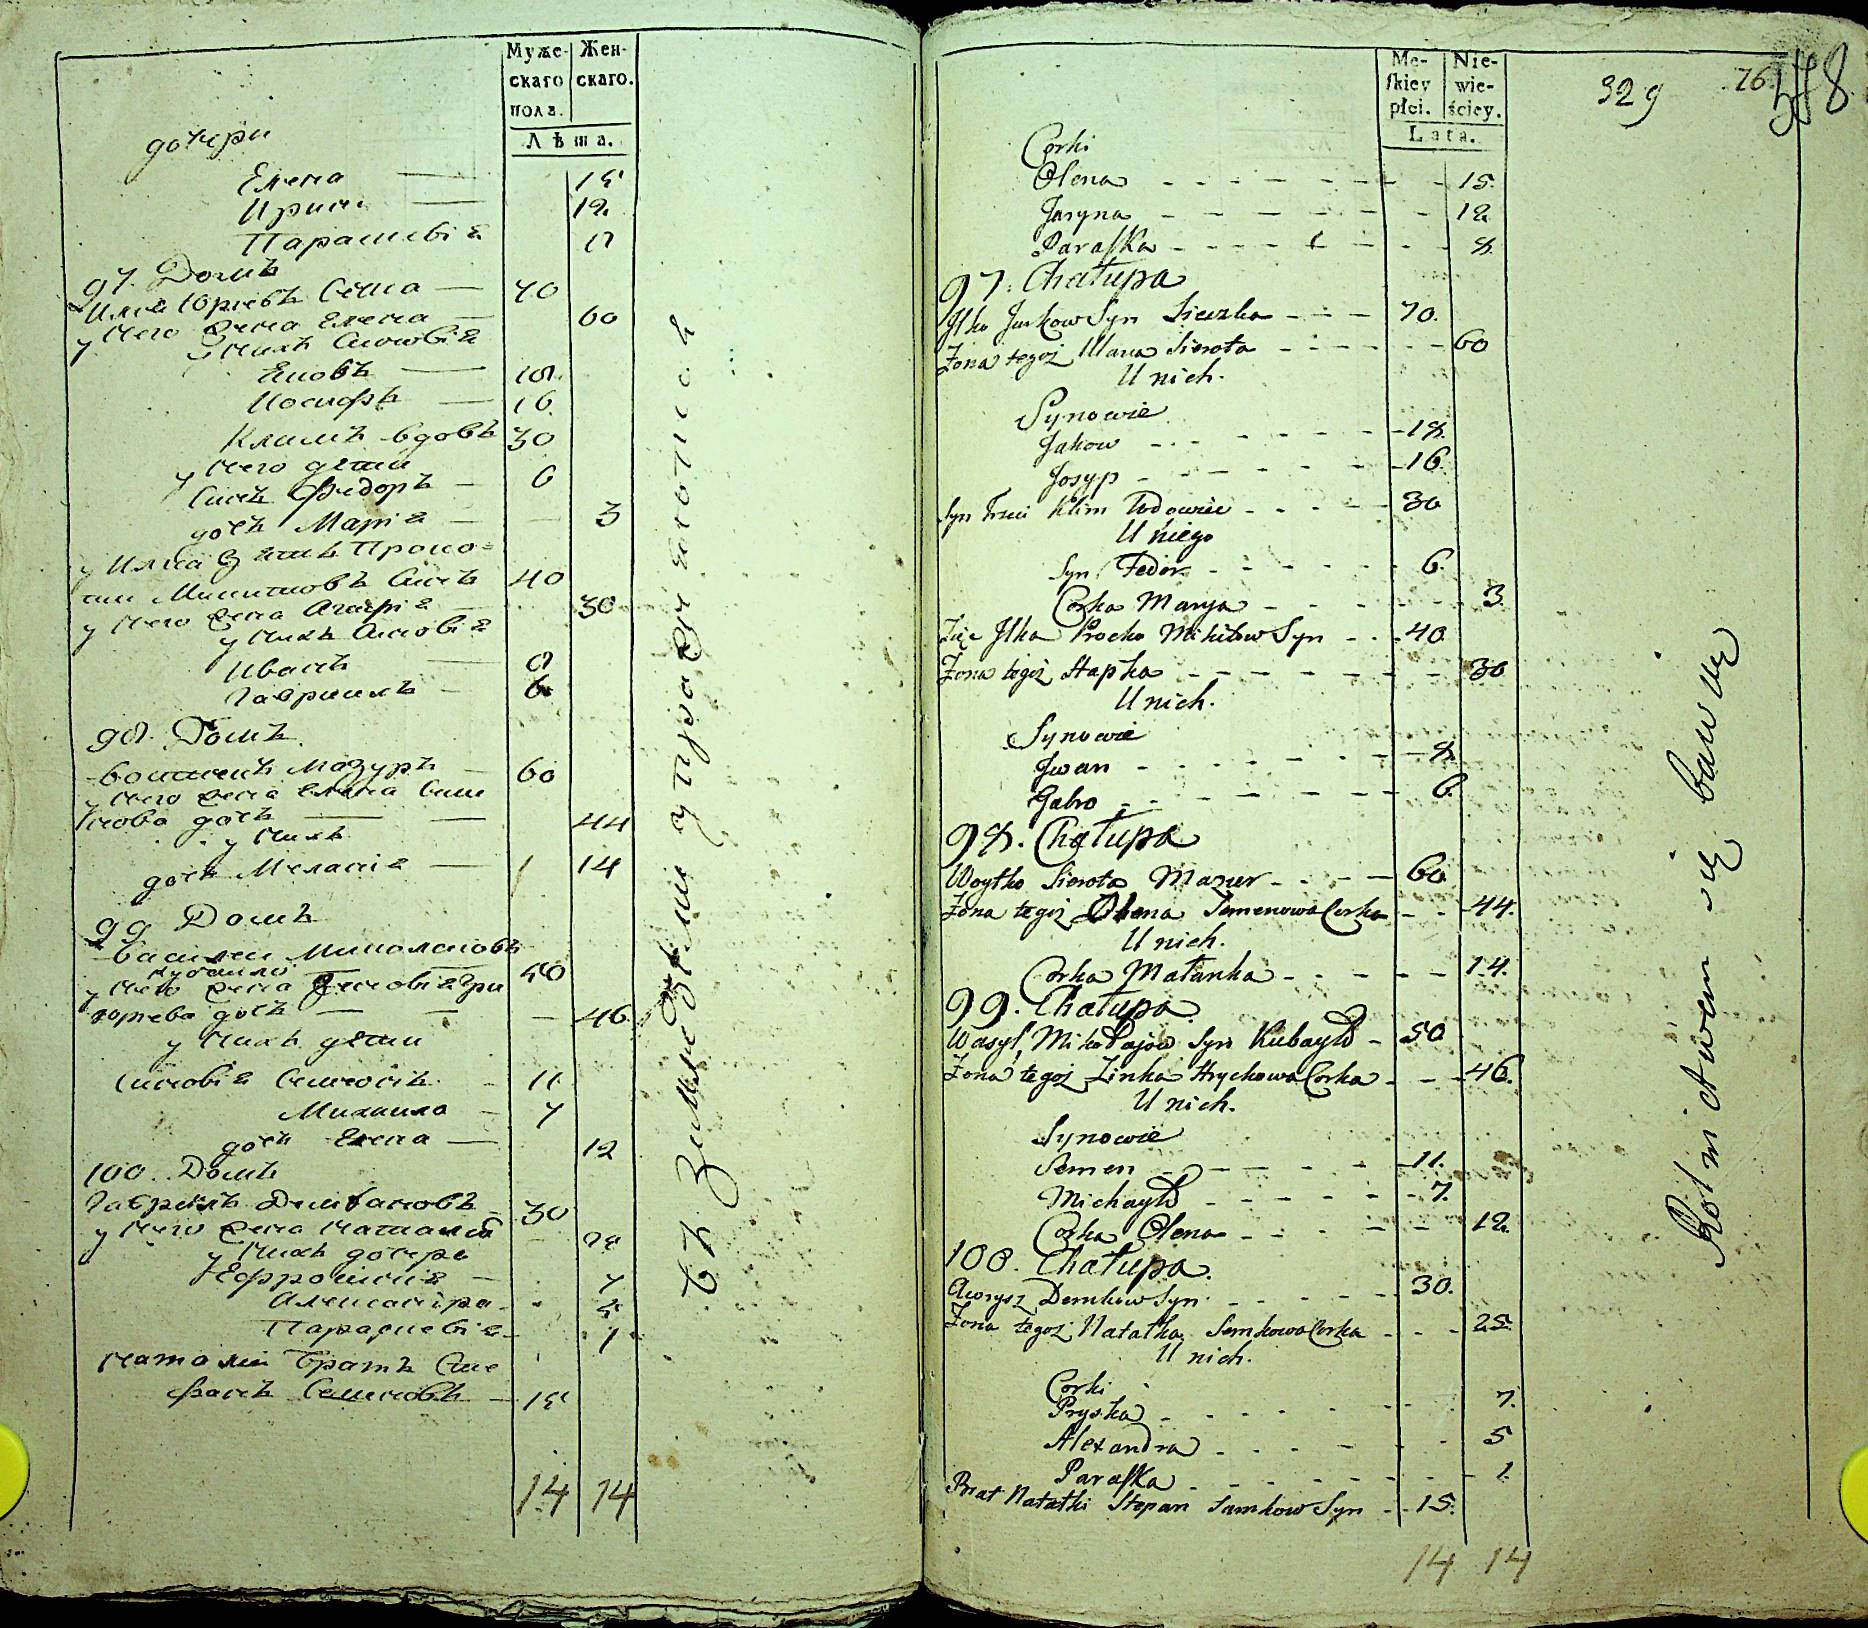 Муже- Жен-
скаго скаго.
пола.
Лѣта.
дочери
Елена — 15
Ирина — 12
Парасковіа 8
97. Домъ
Илиа Юрьевъ — 70
у него жена Елена — 60
у нихъ Сыновіа
Яковъ — 18.
Иосифъ — 16.
Климъ вдовъ 30
у него дети
Синъ Фиодоръ — 6
дочь Мариа — 3
у Илиа зять Проко=
пи Микитовъ Синъ 40
у него жена Агафиа — 30
у нихъ Синовіа
Иванъ — 8
Гавриилъ — 6.
98. Домъ.
Мазуръ — 60
у него жена Елена Семи
онова дочь — — 44
у нихъ
дочь Меланіа — 14
99 Домъ
Василеи Миколаиовъ
Кубаило 50
у него жена Зиновіа Гри
горьева дочь — — 46.
у нихъ дети
Синовіа Семионъ - 11
Михаило - 7
дочь Елена — 12
100. Домъ
Гаврилъ Демяановъ - 30
у него жена Наталиа 25
у нихъ дочери
Ефросиниа — 7
Александра - 5
Парасковіа - 1
Натали братъ Сте
фанъ Семионовъ — 15
14 14
Mę- Nie-
skiey wie-
płci. ściey.
Lata.
329 76. 578
Corki
Olena - - - - - - - - 15.
Jaryna - - - - - - - 12
Paraska - - - - - - - 8.
97. Chałupa
Ilko Jurkow Syn Sieczka - - - 70.
Żona tegoż Maria Sierota - - - - - 60
U nich.
Synowie
Jakow - - - - - - 18.
Josyp - - - - - - 16.
Syn Trzeci Klim Wdowiec - - - - 30
U niego
Syn Fedor - - - - - - 6.
Corka Marya - - - - - - 3.
Zięć Ilka Procko Mikitow Syn - - - 40.
Żona tegoż Hapka - - - - - - - 30
U nich.
Synowie
Iwan - - - - - - - 8.
Gabro - - - - - - - 6.
98. Chałupa
Woytko Sierota Mazur - - - - 60.
Żona tegoż Olena Semenowa Corka - - 44.
U nich.
Corka Małanka - - - - - 14.
99. Chałupa.
Wasyl Mikołajow Syn Kubayło - 50.
Żona tegoż Zinka Hrychowa Corka - - - 46.
U nich.
Synowie
Semen - - - - - - 11.
Michayło - - - - - - 7.
Corka Olena - - - - - 12.
100. Chałupa.
Demkow Syn - - - - - 30.
Żona tegoż Natałka Semkowa Corka - - - 25.
U nich.
Corki
Pryska - - - - - - - 7.
Alexandra - - - - - - 5
Paraska - - - - - - - 1.
Brat Natałki Stepan Samkow Syn - - 15.
14 14